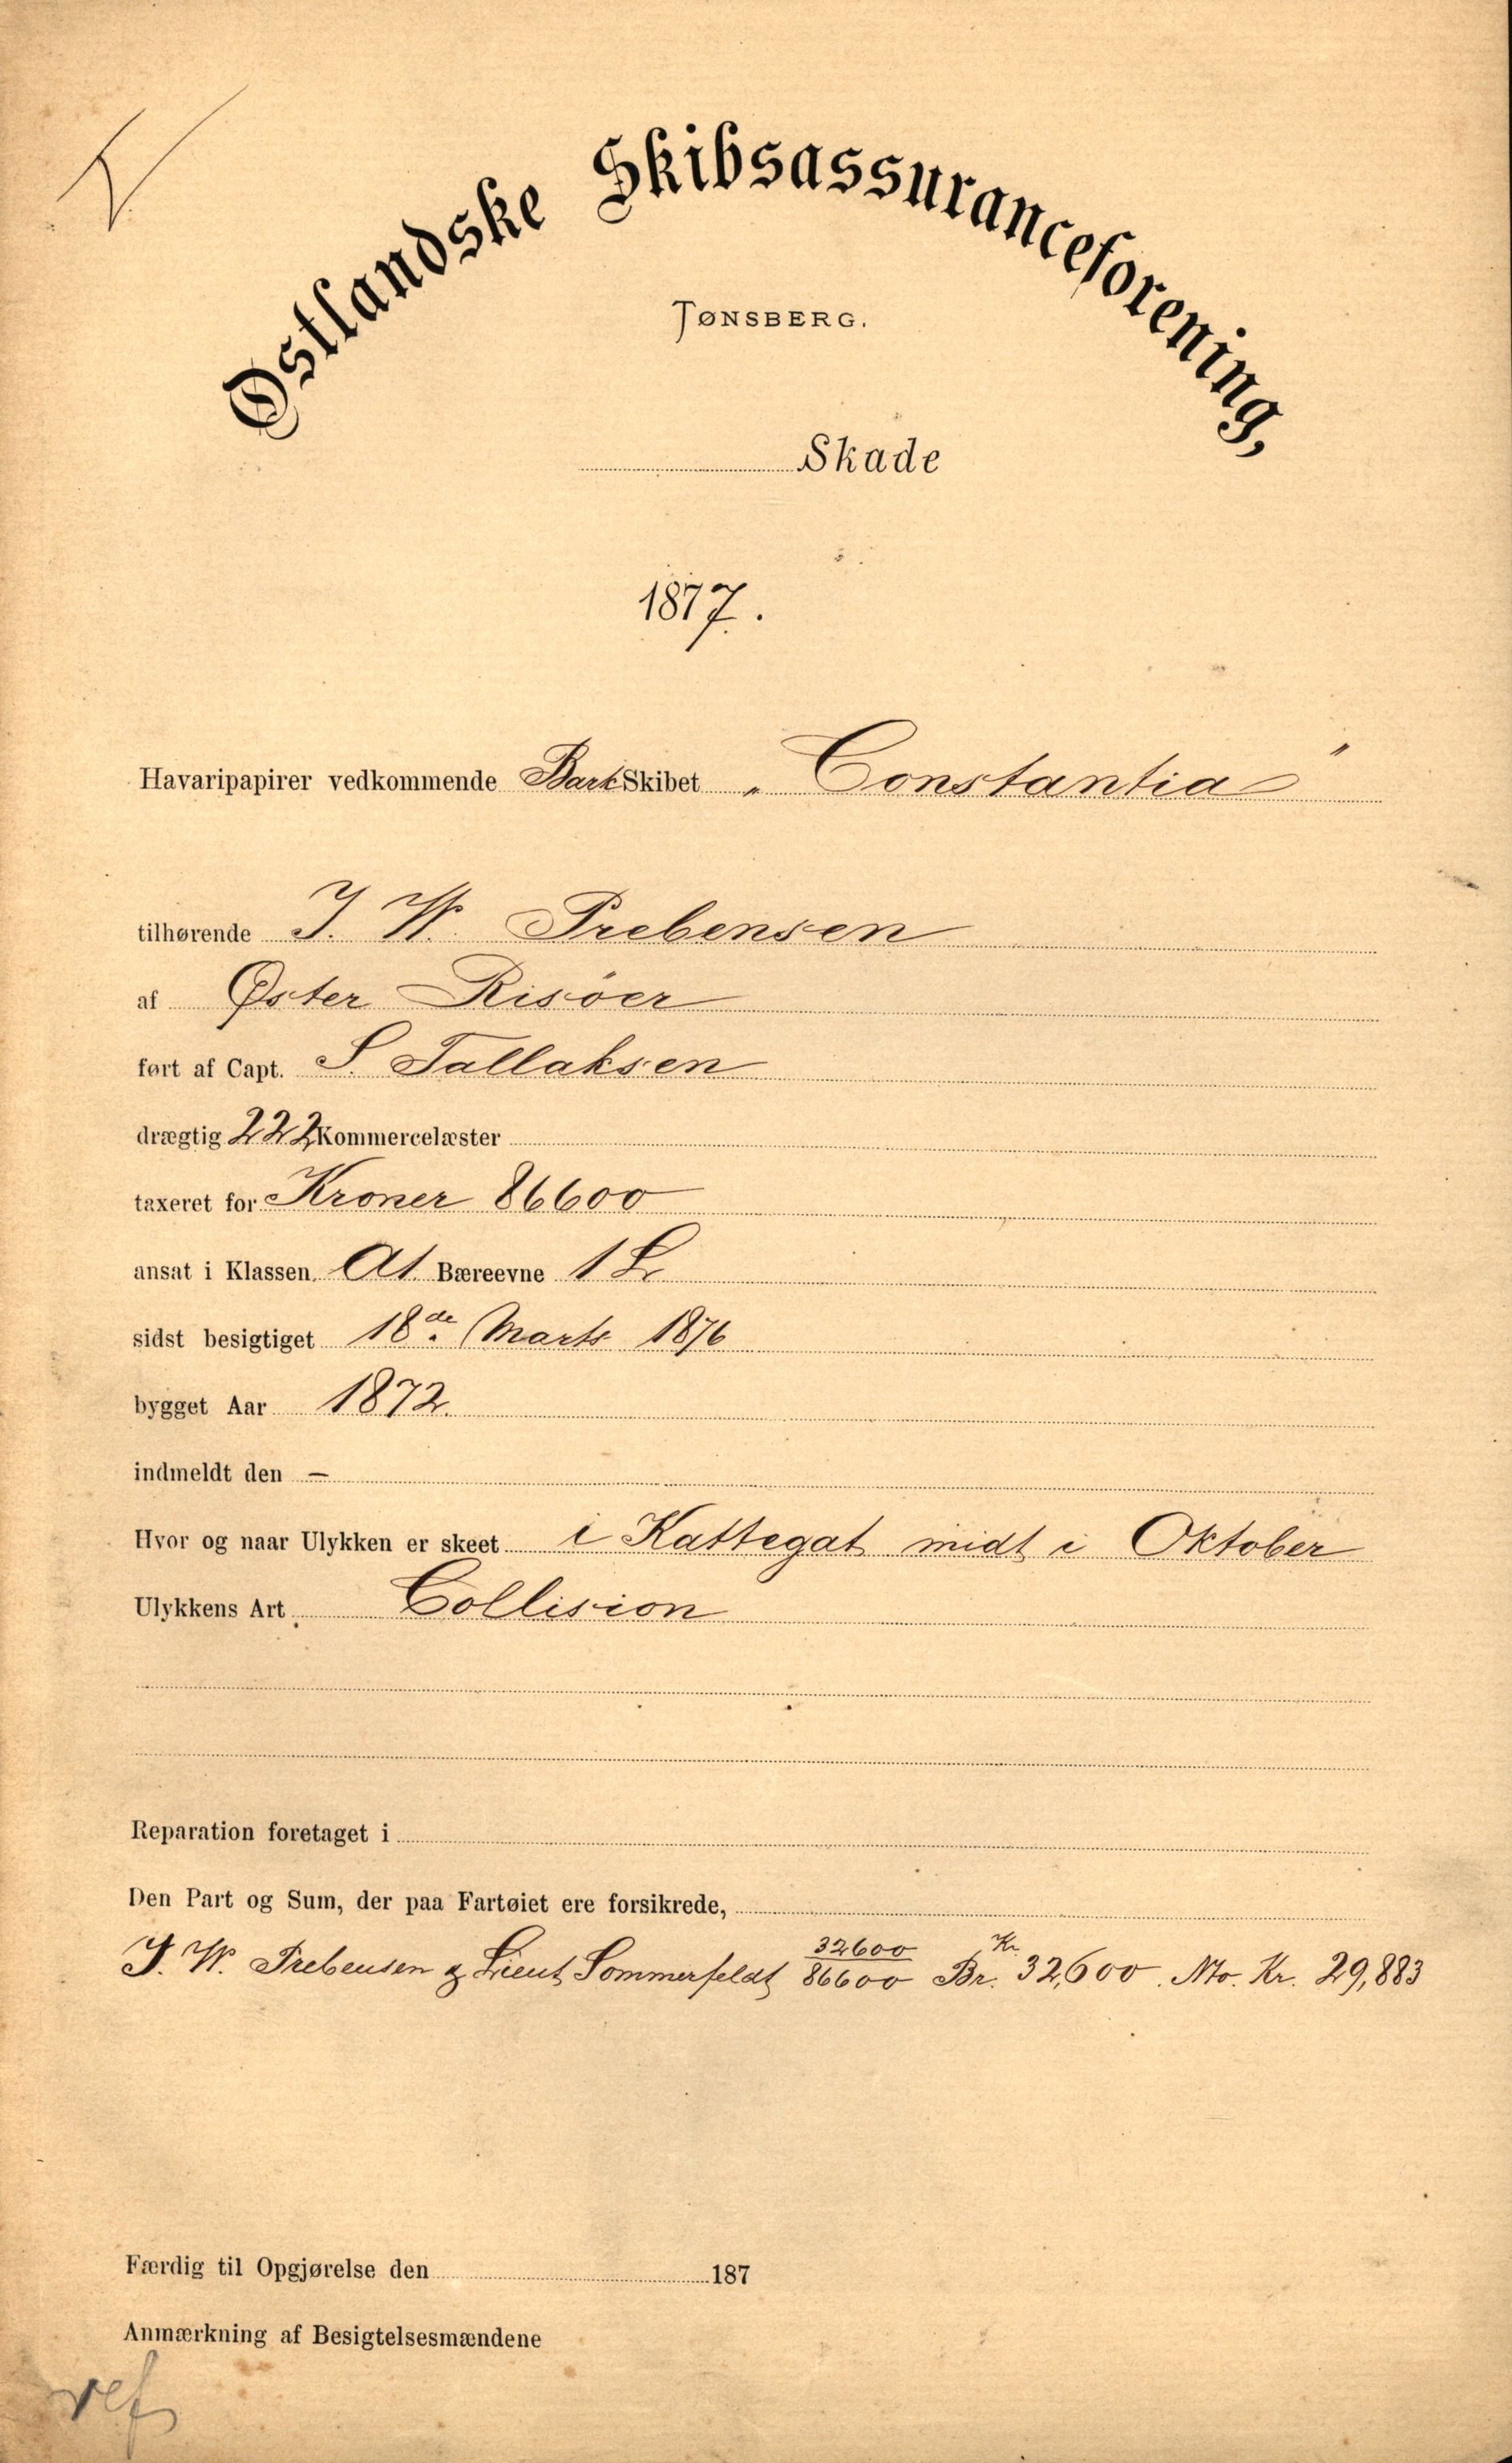 Østlandske Skibsassuranceforening,
TØNSBERG.
Skade
1877.
Havaripapirer vedkommende Bark Skibet „Constantia"
tilhørende J. W. Prebensen
af Øster Risöer
ført af Capt. S. Tallaksen
drægtig 222 Kommercelæster
taxeret for Kroner 86600
ansat i Klassen A1. Bæreevne 1 L.
sidst besigtiget 18de Marts 1876
bygget Aar 1872.
indmeldt den —
Hvor og naar Ulykken er skeet i Kattegat midt i Oktober
Ulykkens Art Collision
Reparation foretaget i
Den Part og Sum, der paa Fartøiet ere forsikrede,
J. W. Prebensen & Lieut Sommerfeldt 32600/86600 Br. Kr. 32,600. Nto. Kr. 29,883
Færdig til Opgjørelse den 187
Anmærkning af Besigtelsesmændene
ref